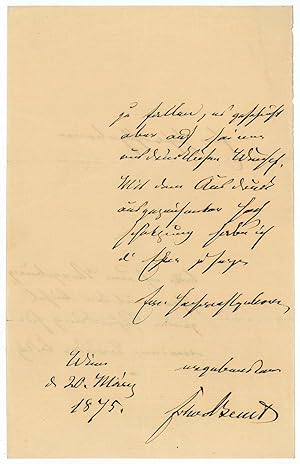 zu fallen, es geschieht
aber auf seinen
ausdrücklichen Wunsch.
Mit dem Ausdruck
ausgezeichneter Hoch
schätzung habe ich
die Ehre zu sein
Euer Hochwohlgeboren
Wien
d 20. März
1875.
ergebenster